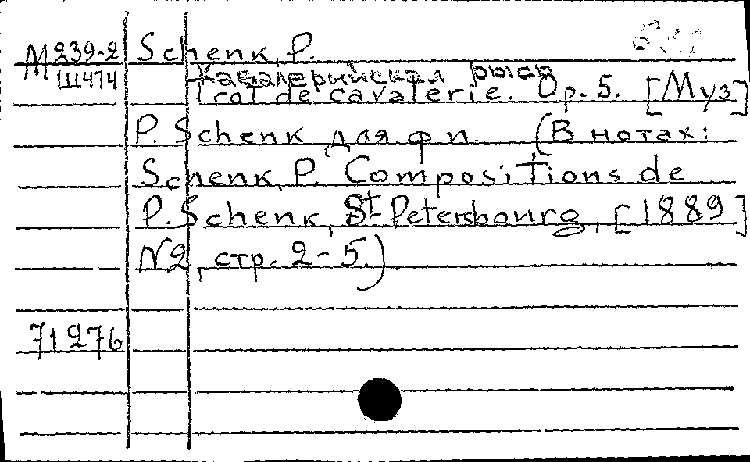 М239-2 Schenk, P.
Ш474 Кавалерийская рысь
Trot de cavalerie. Op. 5. [Муз]
P. Schenk для фп. (В нотах:
Schenk, P. Compositions de
P. Schenk, St-Petersbourg, [1889]
N2, стр. 2-5.)
71276